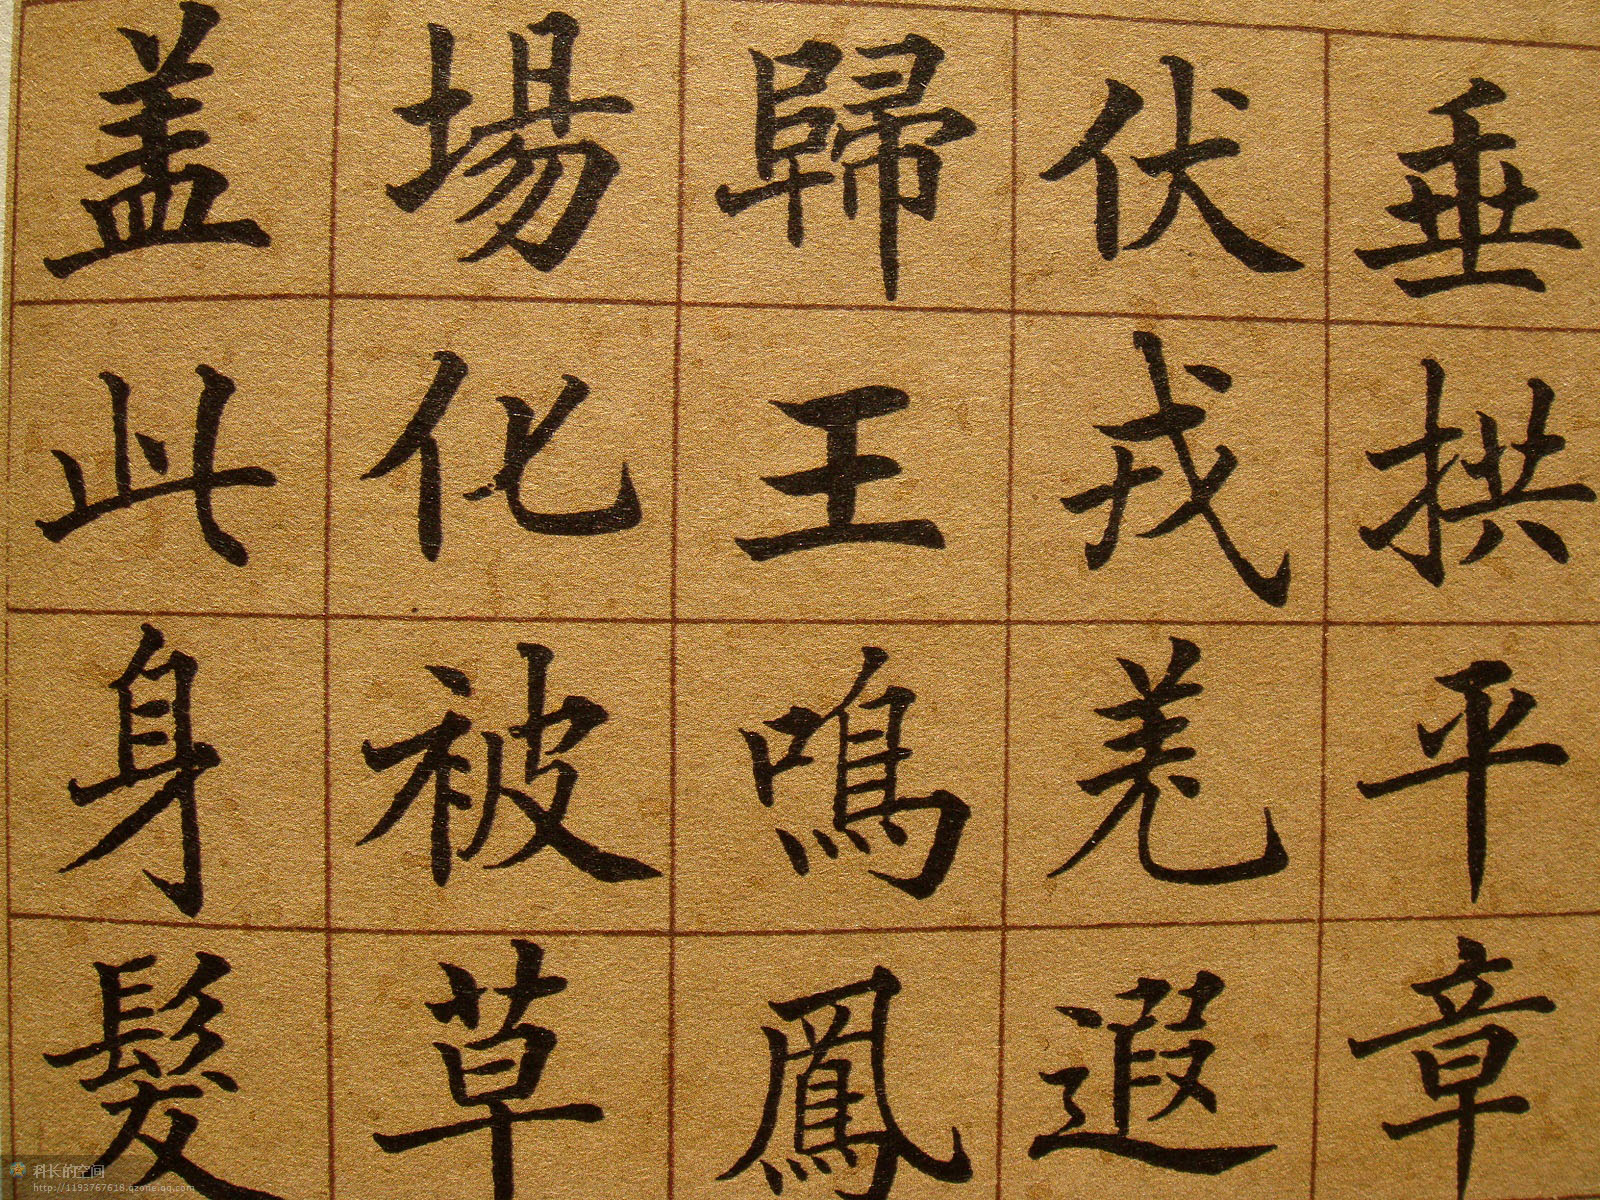 垂拱平章
伏戎羌遐
歸王鳴鳳
場化被草
盖此身髮
科长的空间
http://1193767618.qzone.qq.com